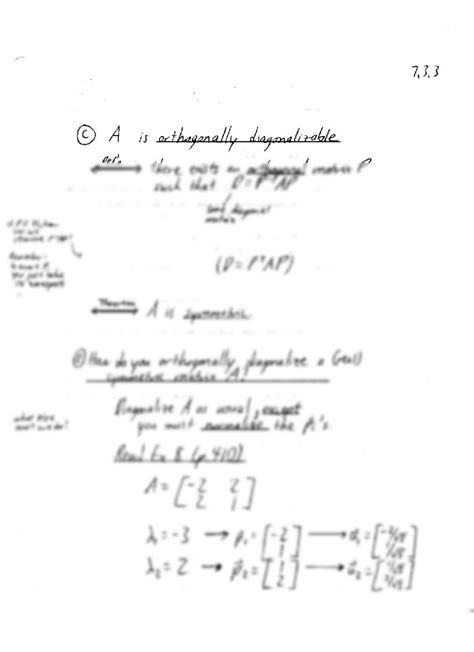 7.3.3
Ⓒ A is orthogonally diagonalizable
Def'n
⟷ there exists an orthogonal matrix P
such that D = P⁻¹AP
some diagonal
matrix
(D = PᵀAP)
Theorem
⟷ A is symmetric
How do you orthogonally diagonalize a (real)
symmetric matrix A?
Diagonalize A as usual, except
you must normalize the pᵢ's.
Read Ex 8 (p.410)
A = [-2 2
2 1]
λ₁ = -3 → p₁ = [-2 1] → u₁ = [-2/√5 1/√5]
λ₂ = 2 → p₂ = [1 2] → u₂ = [1/√5 2/√5]